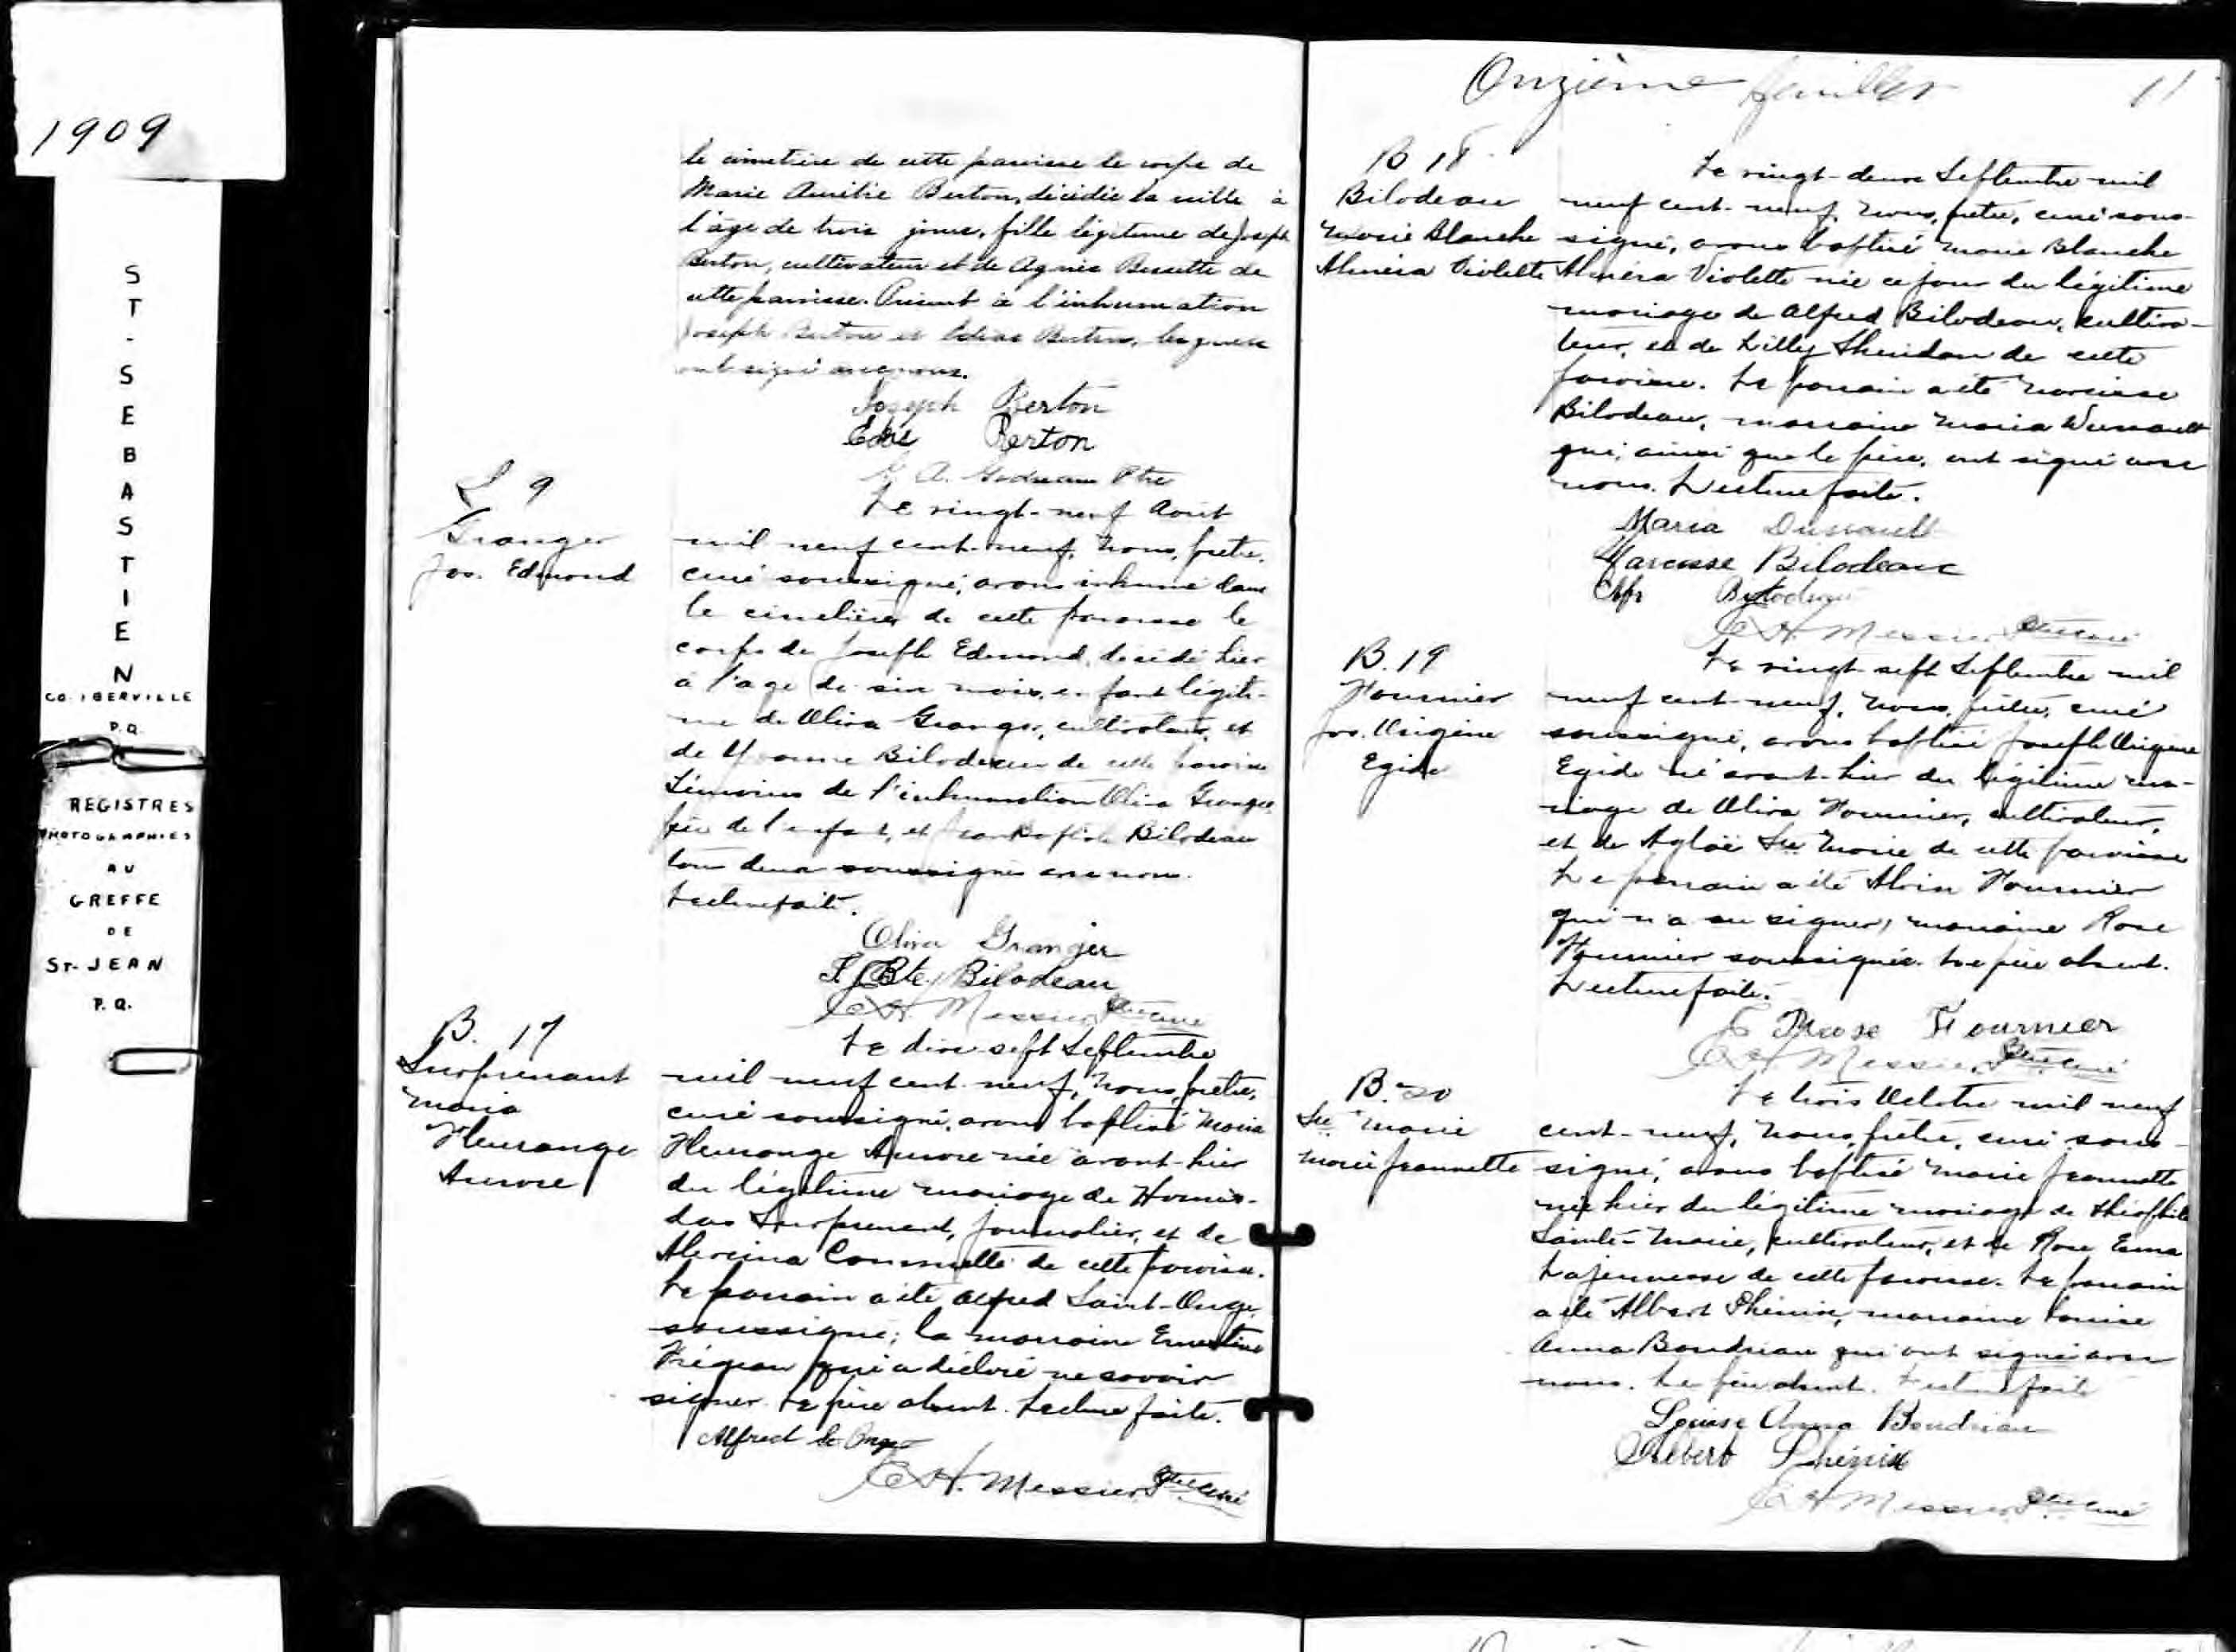 1909
ST-SEBASTIEN
CO. IBERVILLE
P.Q.
REGISTRES
PHOTOGRAPHIES
AU
GREFFE
DE
ST-JEAN
P.Q.
le cimetière de cette paroisse le corps de
Marie Aurélie Berton, décédée la veille à
l'âge de trois jours, fille légitime de Joseph
Berton, cultivateur et de Agnès Bessette de
cette paroisse. Présent à l'inhumation
Joseph Berton et Berton, lesquels
ont signé avec nous.
Joseph Berton
Berton
A. Ptre
S 9
Granger
Jos. Edmond
Le vingt-neuf Août
mil neuf cent-neuf, Nous, prêtre,
curé soussigné, avons inhumé dans
le cimetière de cette paroisse le
corps de Joseph Edmond, décédé hier
à l'age de six mois, enfant légiti-
me de Oliva Granger, cultivateur, et
de Yvonne Bilodeau de cette paroisse
Témoins de l'inhumation Oliva Granger,
père de l'enfant, et Jean Baptiste Bilodeau
tous deux soussignés avec nous.
Lecture faite.
Oliva Granger
J. Bte. Bilodeau
H Messier Ptre curé
B. 17
Surprenant
Maria
Fleurange
Aurore
Le dix-sept Septembre
mil neuf cent-neuf, Nous, prêtre,
curé soussigné, avons baptisé Maria
Fleurange Aurore née avant-hier
du légitime mariage de Hormis-
das Surprenant, journalier, et de
Alexina de cette paroisse.
Le parrain a été Alfred Saint-Onge,
soussigné; la marraine Ernestine
Frégeau qui a déclaré ne savoir
signer. Le père absent. Lecture faite.
Alfred St Onge
H. Messier Ptre curé
Onzième feuillet 11
B 18
Bilodeau
Marie Blanche
Alméra Violette
Le vingt-deux Septembre mil
neuf cent-neuf, Nous, prêtre, curé sous-
signé, avons baptisé Marie Blanche
Alméra Violette née ce jour du légitime
mariage de Alfred Bilodeau, cultiva-
teur, et de Lilly Sheridan de cette
paroisse. Le parrain a été Narcisse
Bilodeau, marraine Maria Dussault
qui, ainsi que le père, ont signé avec
nous. Lecture faite.
Maria Dussault
Narcisse Bilodeau
Alfr Bilodeau
H. Messier Ptre curé
B. 19
Fournier
Jos. Origène
Egide
Le vingt-sept Septembre mil
neuf cent-neuf, Nous, prêtre, curé
soussigné, avons baptisé Joseph Origène
Egide né avant-hier du légitime ma-
riage de Oliva Fournier, cultivateur,
et de Aglaë Ste Marie de cette paroisse
Le parrain a été Fournier
qui n'a su signer, marraine Rose
Fournier soussignée. Le père absent.
Lecture faite.
Rose Fournier
H Messier Ptre curé
B. 20
Ste Marie
Marie Jeannette
Le trois Octobre mil neuf
cent-neuf, Nous, prêtre, curé sous-
signé, avons baptisé Marie Jeannette
née hier du légitime mariage de Théophile
Sainte-Marie, cultivateur, et de Rose Erma
Lajeunesse de cette paroisse. Le parrain
a été Albert Phénix, marraine Louise
Anna Boudriau qui ont signé avec
nous. Le père absent. Lecture faite
Louise Anna Boudriau
Albert Phénix
H Messier Ptre curé